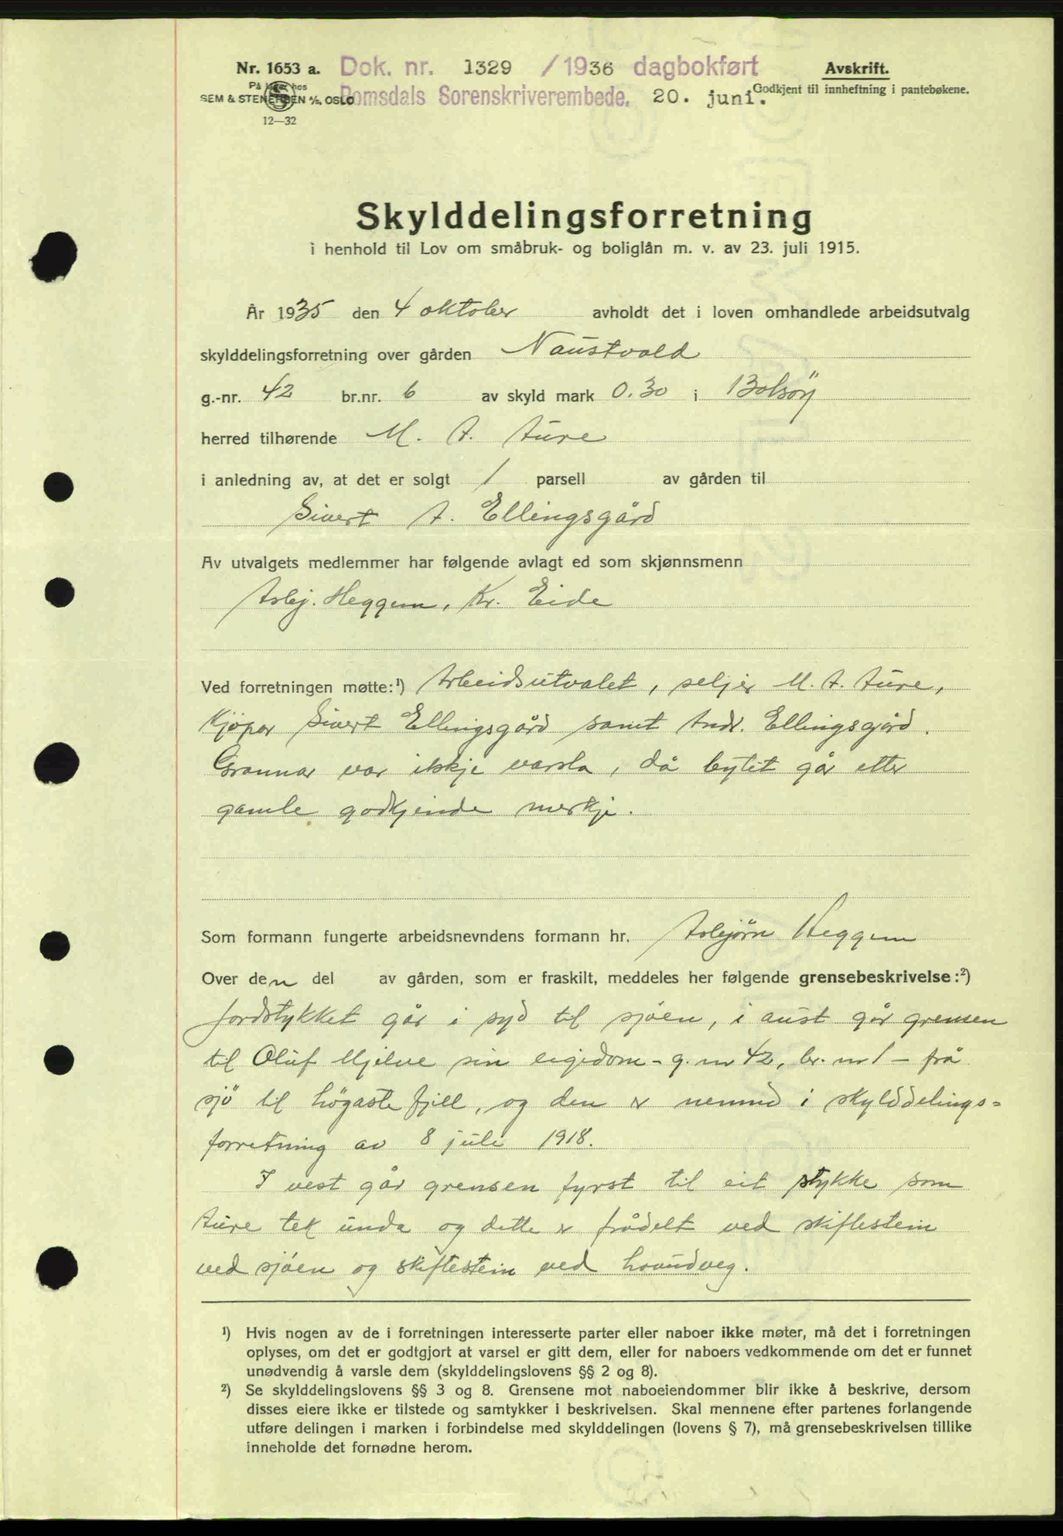 Nr. 1653 a. Dok. nr. 1329 /1936 dagbokført Avskrift.
På lager hos
SEM & STENERSEN A/S, OSLO Romsdals Sorenskriverembede. 20. juni. Godkjent til innheftning i pantebøkene.
12—32
Skylddelingsforretning
i henhold til Lov om småbruk- og boliglån m. v. av 23. juli 1915.
År 1935 den 4 oktober avholdt det i loven omhandlede arbeidsutvalg
skylddelingsforretning over gården Naustvold
g.-nr. 42 br.nr. 6 av skyld mark 0.30 i Bolsøy
herred tilhørende M. A. Aure
i anledning av, at det er solgt 1 parsell av gården til
Sivert A. Ellingsgård
Av utvalgets medlemmer har følgende avlagt ed som skjønnsmenn
Asbj. Heggem, Kr. Eide
Ved forretningen møtte:¹) Arbeidsutvalet, seljer M. A. Aure,
Kjøpar Sivert Ellingsgård samt Andr. Ellingsgård.
Grannar var ikkje varsla, då bytet går etter
gamle godkjende merkje.
Som formann fungerte arbeidsnevndens formann hr. Asbjørn Heggem
Over den del av gården, som er fraskilt, meddeles her følgende grensebeskrivelse:²)
Jordstykket går i syd til sjøen, i aust går grensen
til Oluf Hjelve sin eigedom - g. nr 42, br. nr 1 - frå
sjø til høgaste fjell, og den er nemnd i skylddelings=
forretning av 8 juli 1918.
I vest går grensen fyrst til eit stykke som
Aure tek unda og dette er frådelt ved skiftestein
ved sjøen og skiftestein ved hovudveg.
¹) Hvis nogen av de i forretningen interesserte parter eller naboer ikke møter, må det i forretningen
oplyses, om det er godtgjort at varsel er gitt dem, eller for naboers vedkommende om det er funnet
unødvendig å varsle dem (skylddelingslovens §§ 2 og 8).
²) Se skylddelingslovens §§ 3 og 8. Grensene mot naboeiendommer blir ikke å beskrive, dersom
disses eiere ikke er tilstede og samtykker i beskrivelsen. Skal mennene efter partenes forlangende
utføre delingen i marken i forbindelse med skylddelingen (lovens § 7), må grensebeskrivelsen tillike
inneholde det fornødne herom.